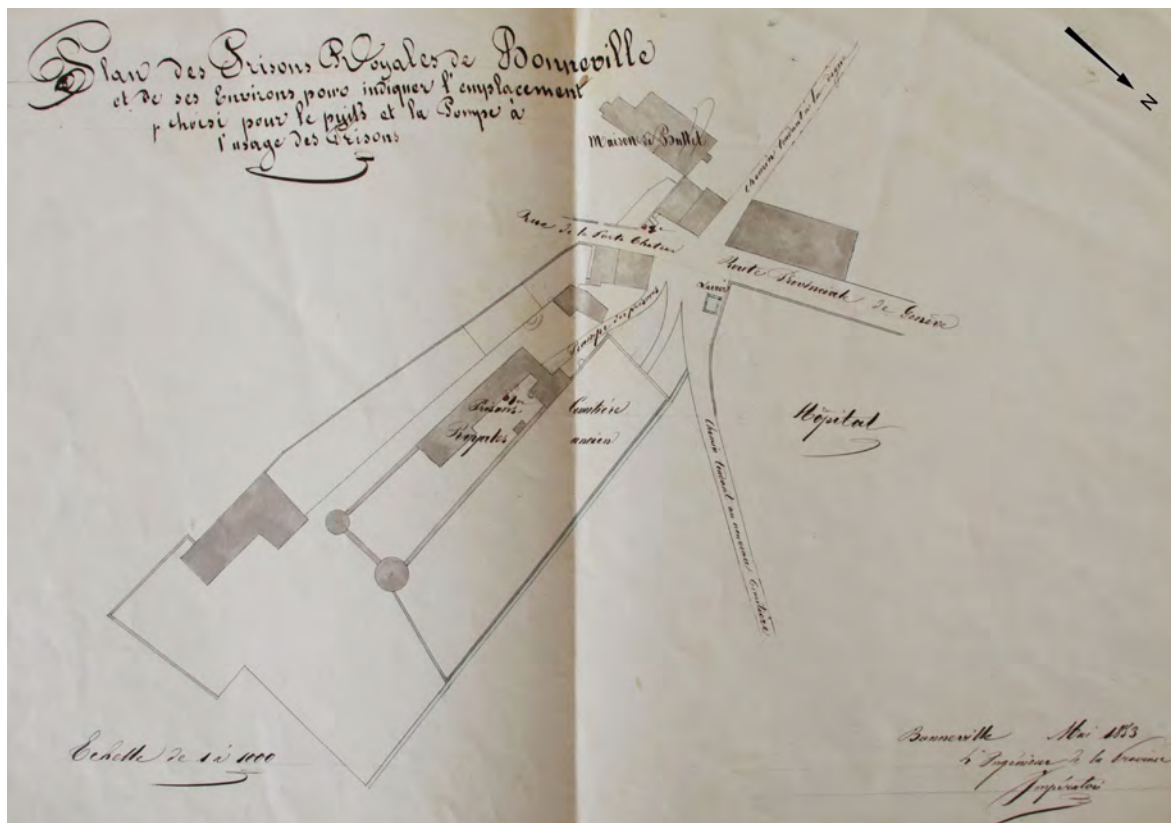 Plan des Prisons Royales de Bonneville
et de ses Environs pour indiquer l'emplacement
choisi pour le puits et la Pompe à
l'usage des Prisons
N
Maison de Bullet
Chemin tendant à la vigne
Rue de la Porte Chetran
Route Provinciale de Genève
Rampe des prisons
Prisons
Royales
Cimetière
ancien
Hôpital
Chemin tendant au nouveau Cimetière
Echelle de 1 à 1000
Bonneville Mai 1853
L'Ingénieur de la Province
Impératori